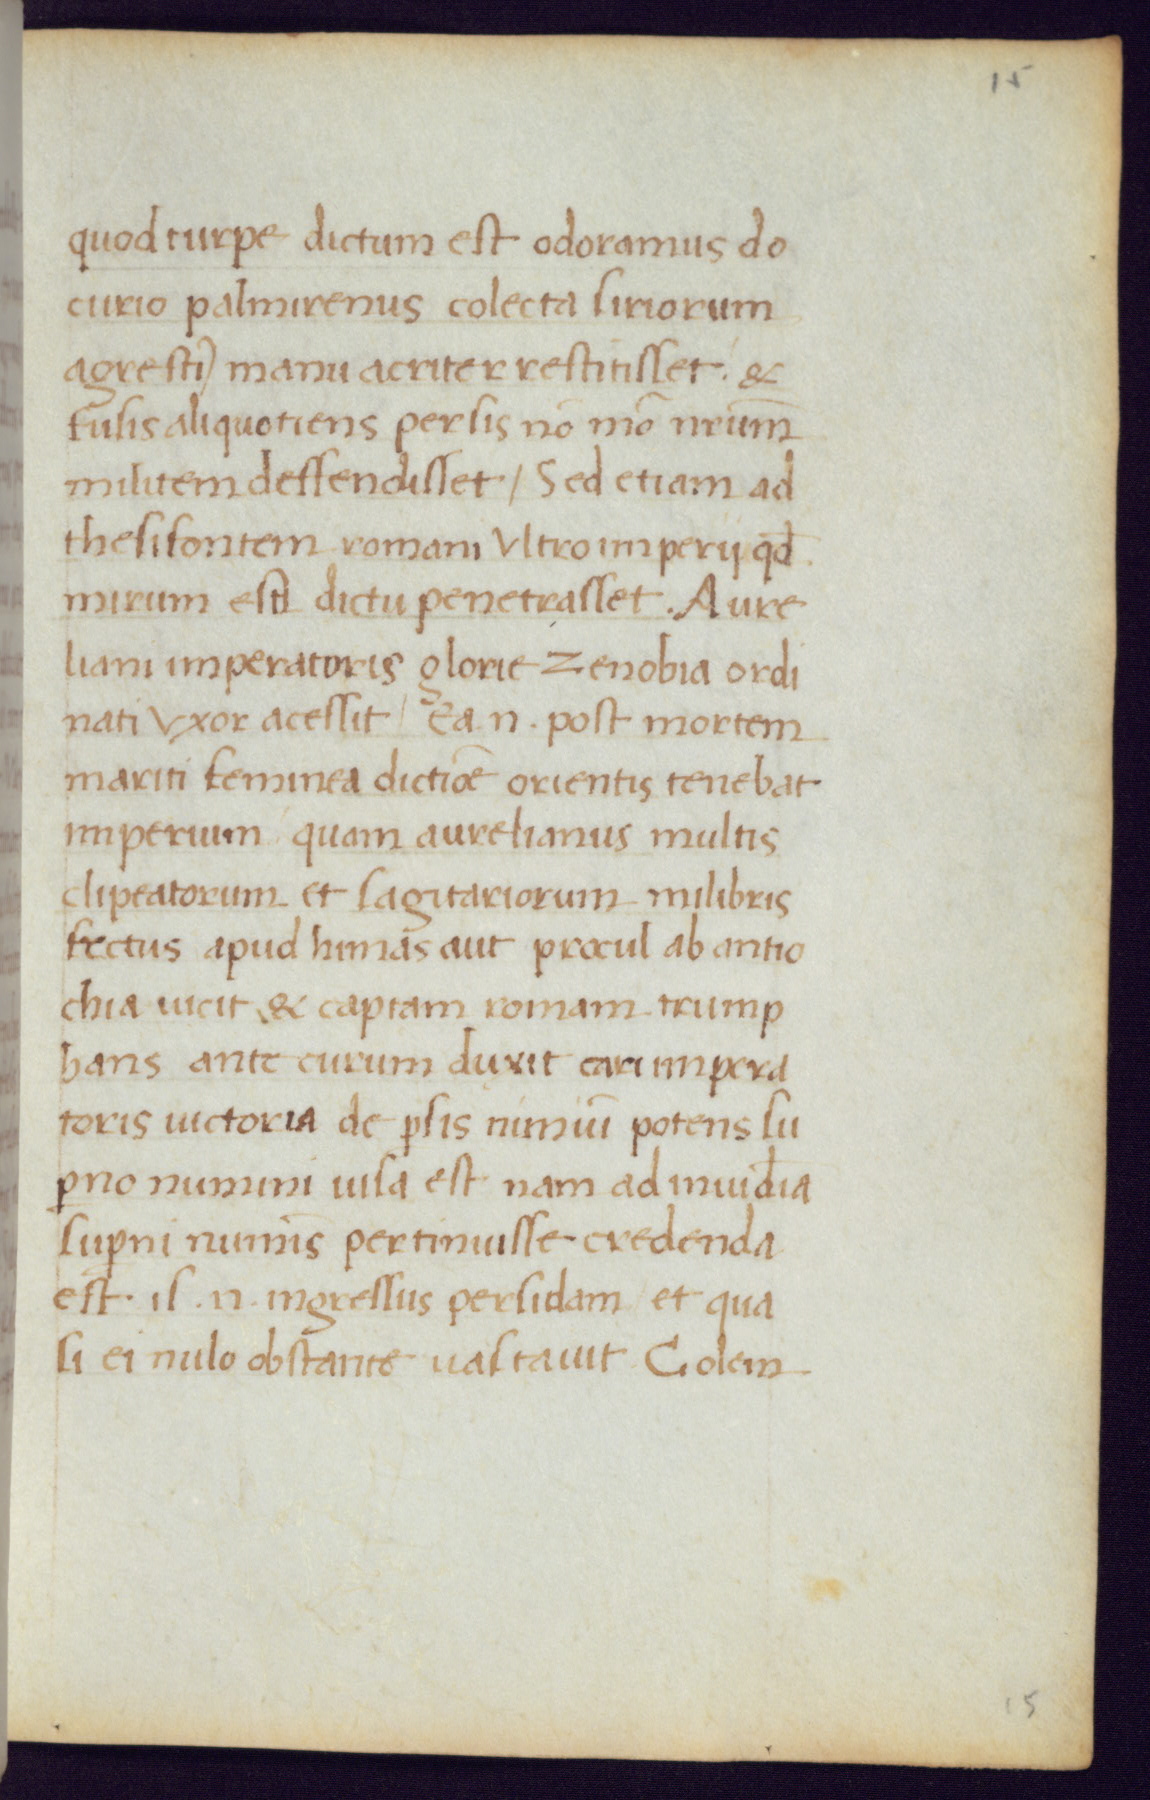 15
quod turpe dictum est odoramus do
curio palmirenus colecta siriorum
agresti) manu acriter restitisset. &
fusis aliquotiens persis nō mō nrium̄
militem deffendisset / Sed etiam ad
thesifontem romani Vltro imperij qd̄
mirum est dictu penetrasset. Aure
liani imperatoris glorie Zenobia ordi
nati Vxor acessit / Ea n. post mortem
mariti feminea dictiōe orientis tenebat
imperium quam aurelianus multis
clipeatorum et sagitariorum milibris
fretus apud himas aut procul ab antio
chia uicit & captam romam trump
hans ante curum duxit cari impera
toris uictoria de psis nimiū potens su
pno numini uisa est nam ad inuidia
supni numis̄ pertinuisse credenda
est. is. n. ingressus persidam et qua
si ei nulo obstante uastauit Colem
15